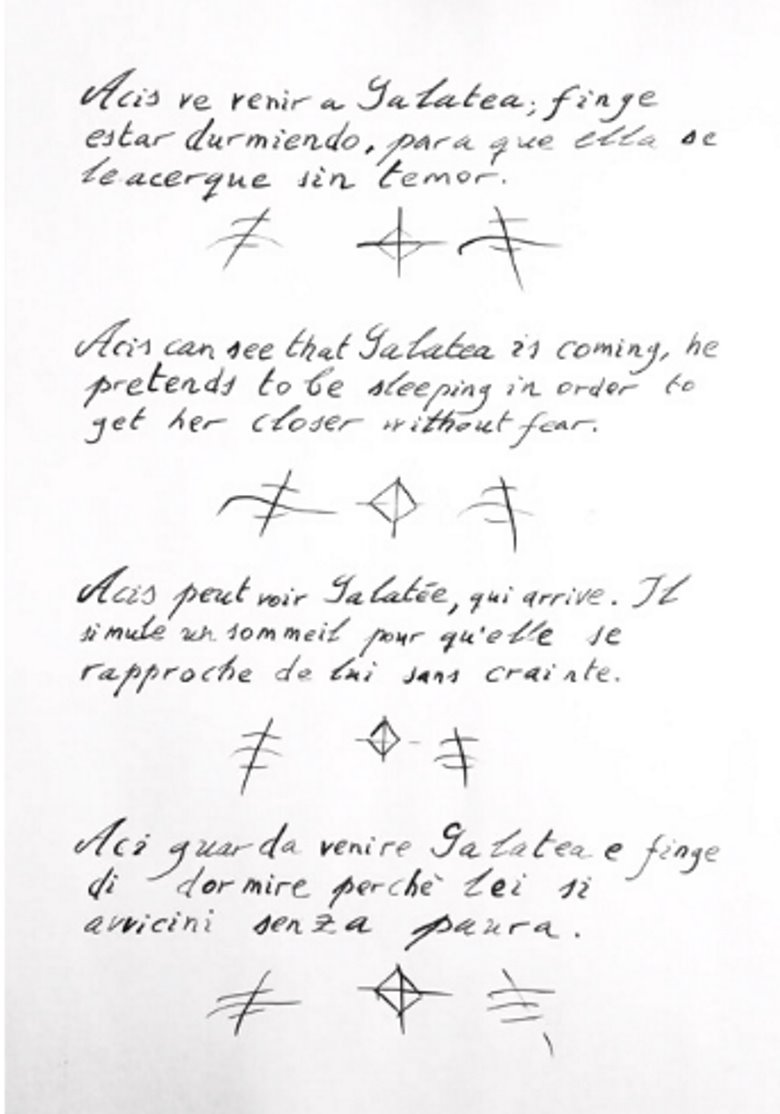 Acis ve venir a Galatea; finge
estar durmiendo, para que ella se
le acerque sin temor.
Acis can see that Galatea is coming, he
pretends to be sleeping in order to
get her closer without fear.
Acis peut voir Galatée, qui arrive. Il
simule un sommeil pour qu'elle se
rapproche de lui sans crainte.
Aci guarda venire Galatea e finge
di dormire perchè lei si
avvicini senza paura.